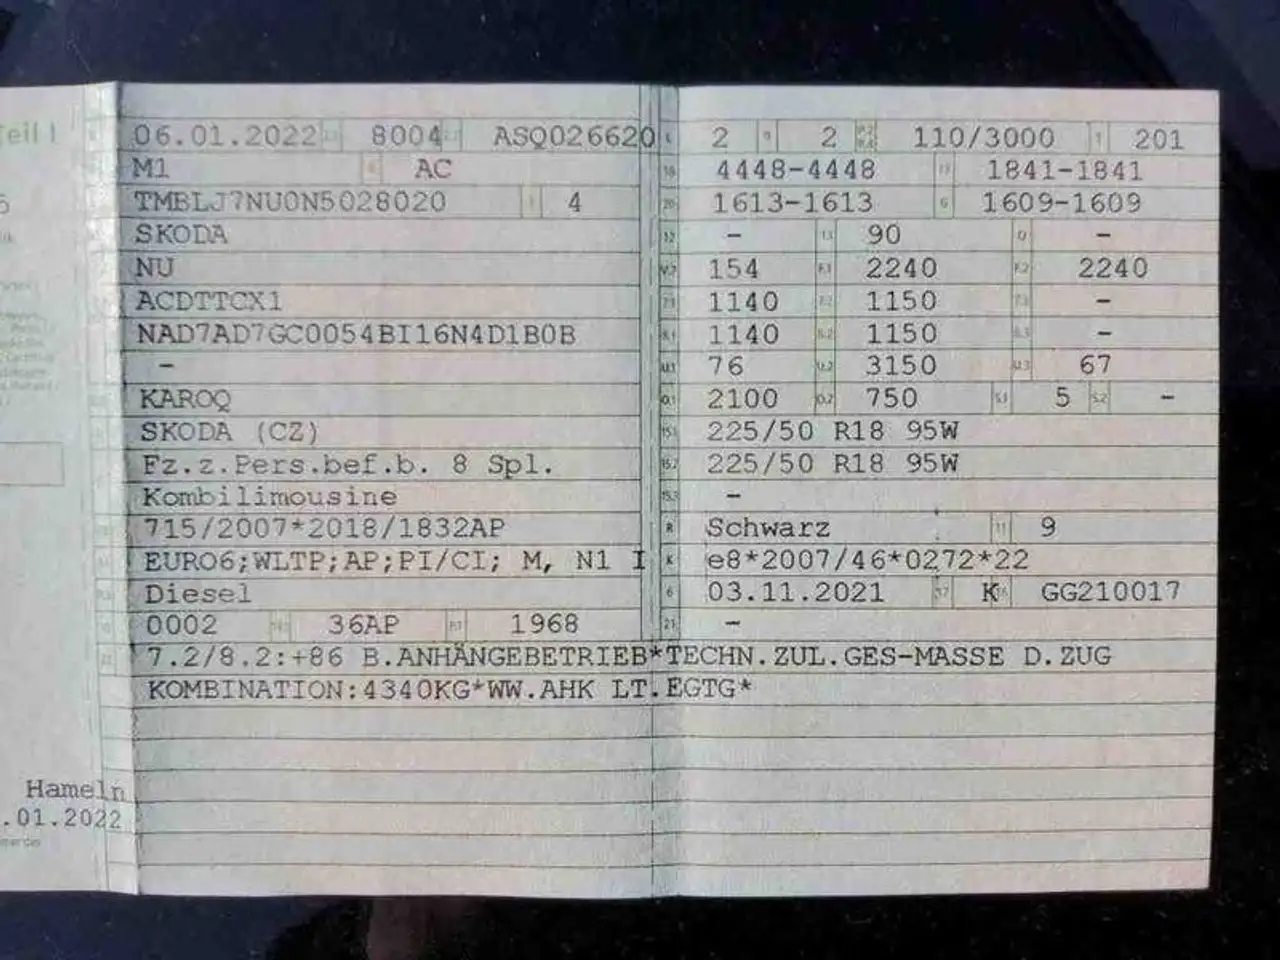 Teil I
06.01.2022 8004 ASQ026620
M1 AC
TMBLJ7NU0N5028020 4
SKODA
NU
ACDTTCX1
NAD7AD7GC0054BI16N4D1B0B
-
KAROQ
SKODA (CZ)
Fz.z.Pers.bef.b. 8 Spl.
Kombilimousine
715/2007*2018/1832AP
EURO6;WLTP;AP;PI/CI; M, N1 I
Diesel
0002 36AP P.1 1968
L 2 9 2 110/3000 T 201
18 4448-4448 19 1841-1841
20 1613-1613 G 1609-1609
12 - 13 90 Q -
V.7 154 F.1 2240 F.2 2240
7.1 1140 7.2 1150 7.3 -
8.1 1140 8.2 1150 8.3 -
U.1 76 U.2 3150 U.3 67
O.1 2100 O.2 750 S.1 5 S.2 -
15.1 225/50 R18 95W
15.2 225/50 R18 95W
15.3 -
R Schwarz 11 9
K e8*2007/46*0272*22
6 03.11.2021 17 K 16 GG210017
21 -
22 7.2/8.2:+86 B.ANHÄNGEBETRIEB*TECHN.ZUL.GES-MASSE D.ZUG
KOMBINATION:4340KG*WW.AHK LT.EGTG*
Hameln
.01.2022